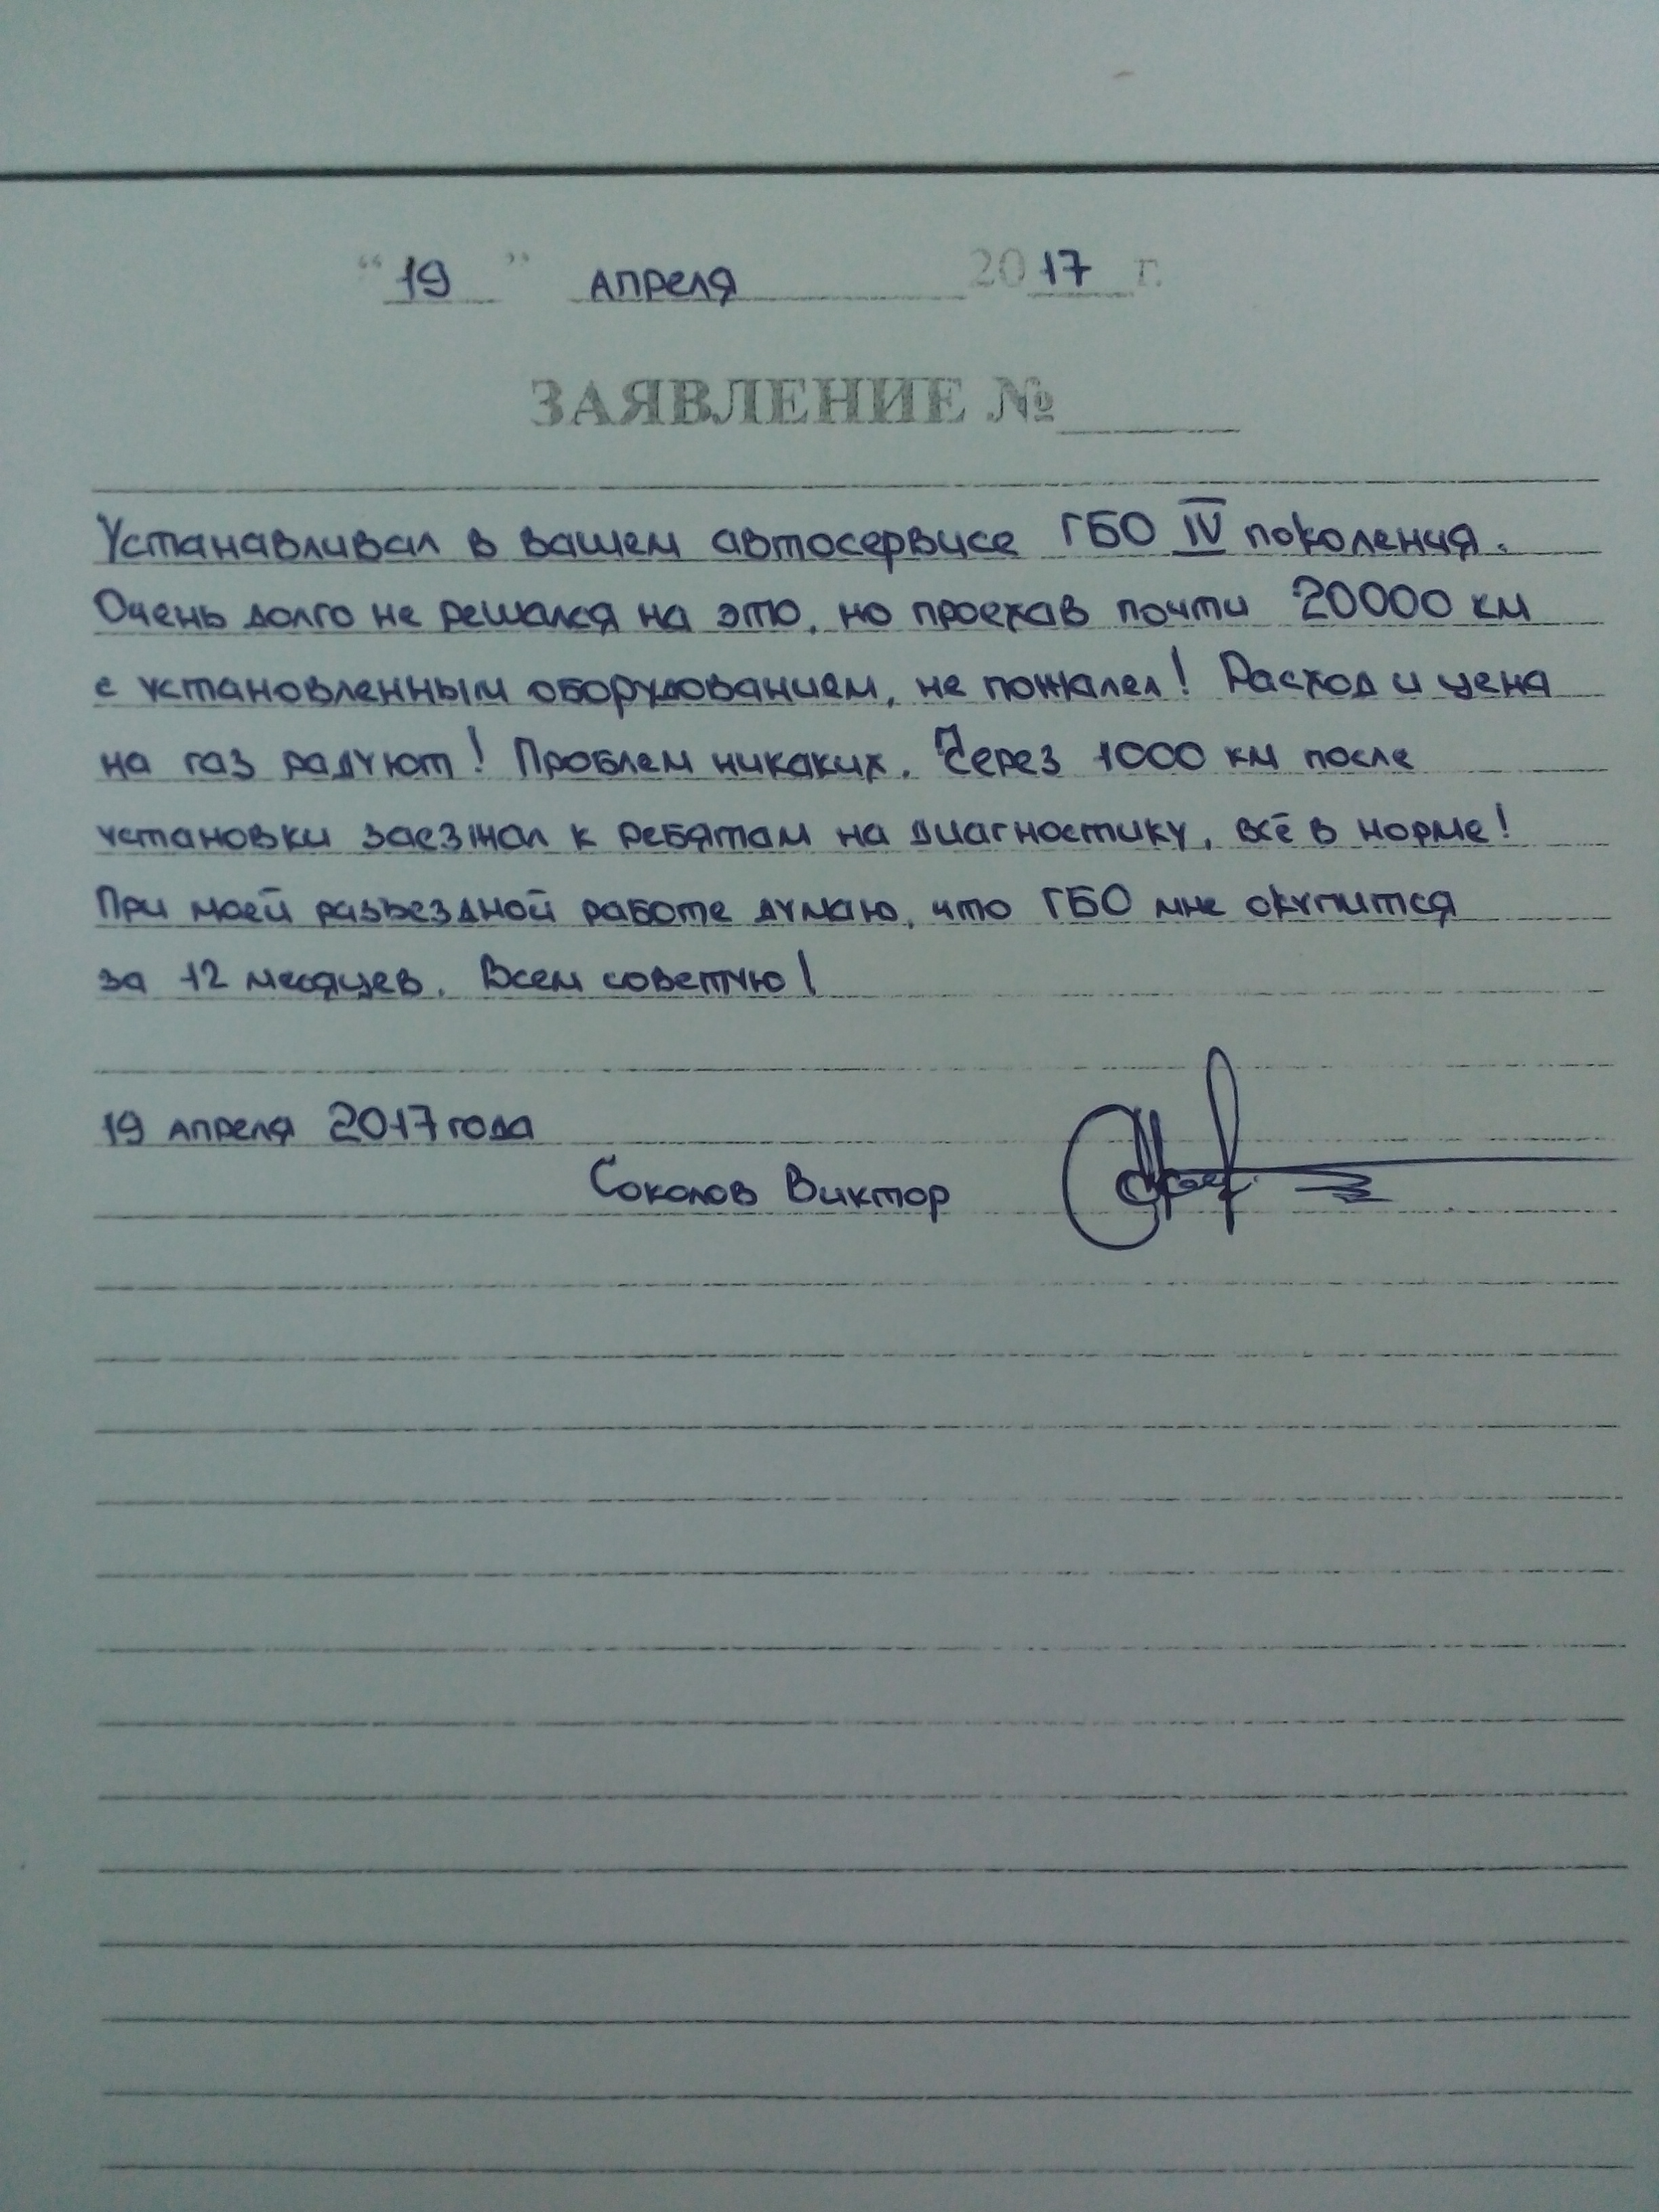 “19” апреля 2017 г.
ЗАЯВЛЕНИЕ №
Устанавливал в вашем автосервисе ГБО IV поколения.
Очень долго не решался на это, но проехав почти 20000 км
с установленным оборудованием, не пожалел! Расход и цена
на газ радуют! Проблем никаких. Через 1000 км после
установки заезжал к ребятам на диагностику, всё в норме!
При моей разъездной работе думаю, что ГБО мне окупится
за 12 месяцев. Всем советую!
19 апреля 2017 года
Соколов Виктор